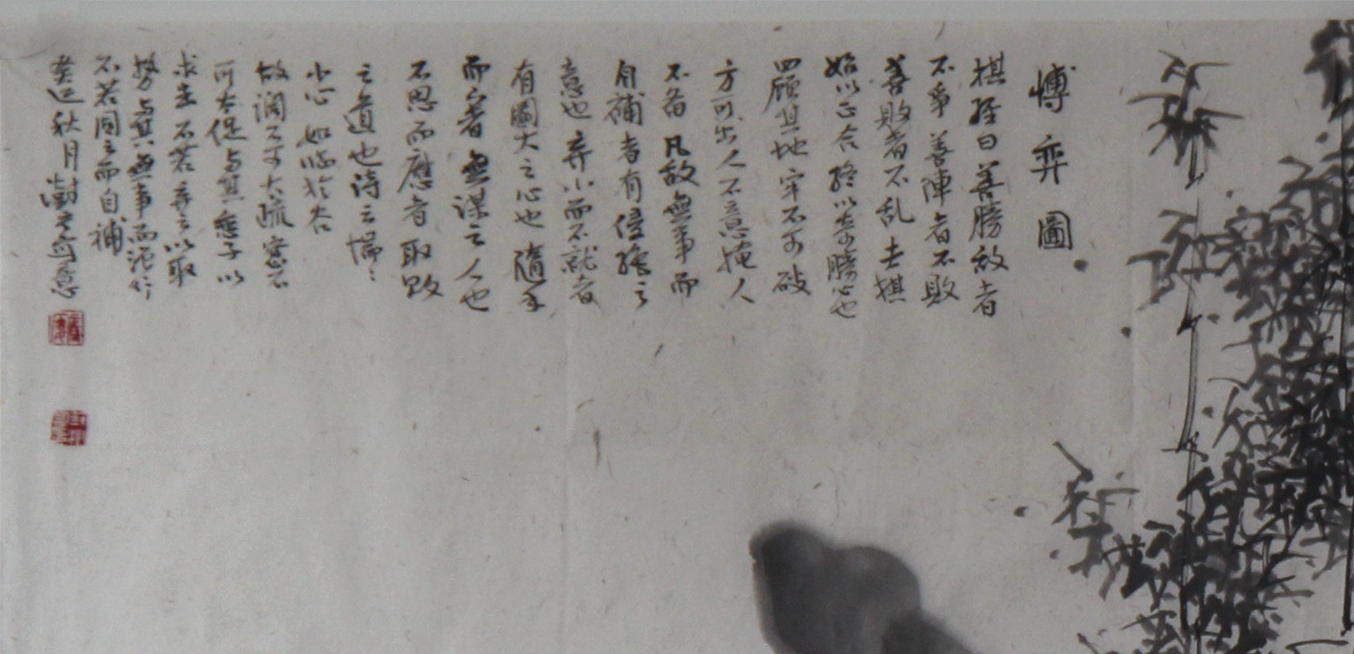 愽弈圖
棋經曰善勝敵者
不爭善陣者不敗
善敗者不乱夫棋
始以正合終以奇勝也
四顧其地牢不可破
方可出人不意掩人
不备凡敌無事而
自補者有侵绝之
意也弃小而不就者
有圖大之心也隨手
而下者無谋之人也
不思而應者取敗
之道也诗云惴〻
小心如临於谷
故濶不可太疏密不
可太促与其恋子以
求生不若弃之以取
势与其無事而强行
不若因之而自補
癸巳秋月澍写意